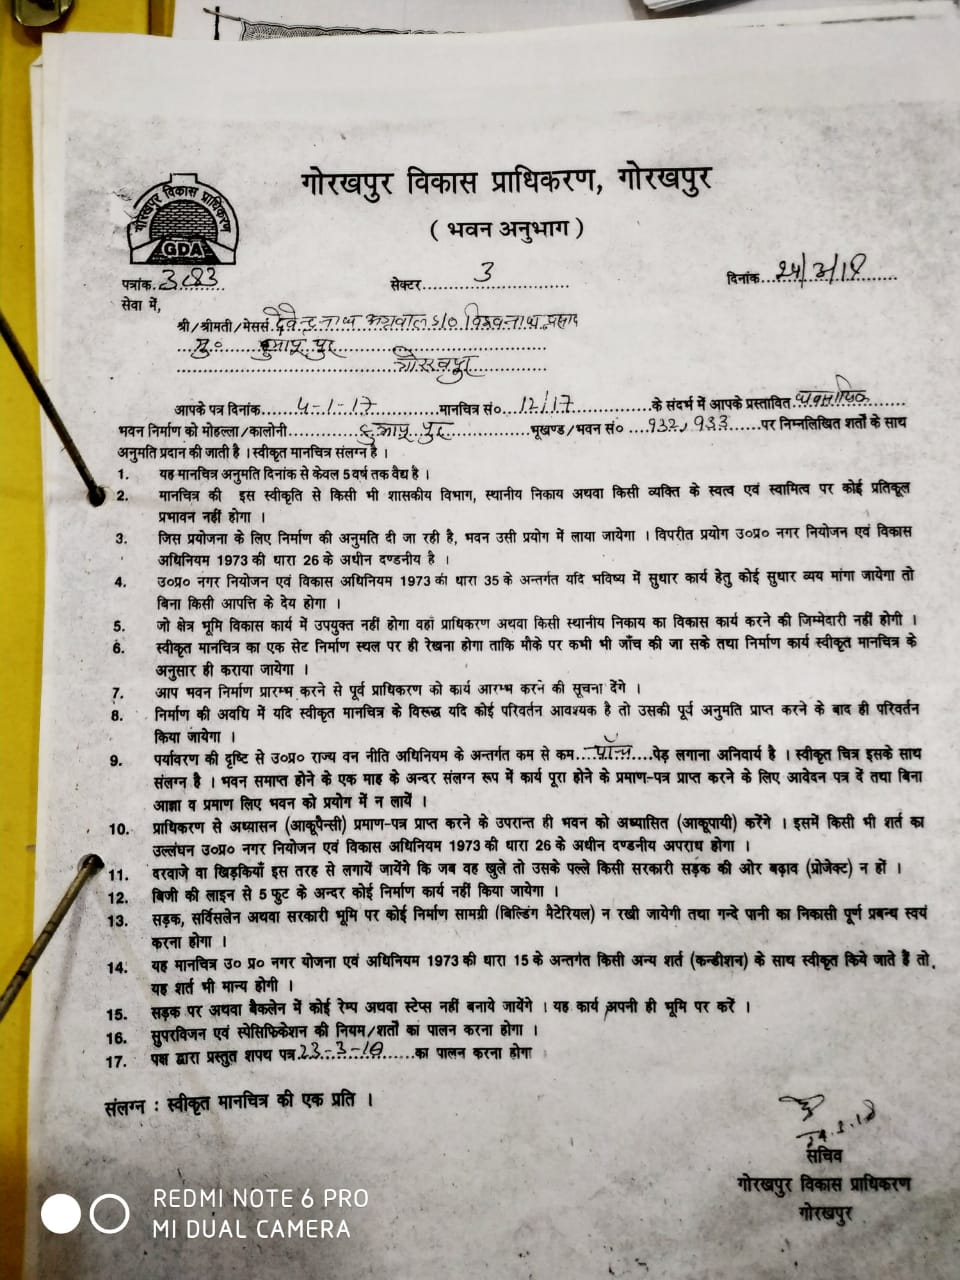 गोरखपुर विकास प्राधिकरण, गोरखपुर
( भवन अनुभाग )
गोरखपुर विकास प्राधिकरण
GDA
पत्रांक.
सेक्टर 3
दिनांक
सेवा में,
श्री/श्रीमती/मेसर्स देवेन्द्र नाथ अग्रवाल S/O विश्वनाथ प्रसाद
मु०
गोरखपुर
आपके पत्र दिनांक 4-1-17 मानचित्र सं० 12/17 के संदर्भ में आपके प्रस्तावित व्यवसायिक
भवन निर्माण को मोहल्ला/कालोनी भूखण्ड/भवन सं० 932, 933 पर निम्नलिखित शर्तों के साथ
अनुमति प्रदान की जाती है । स्वीकृत मानचित्र संलग्न है ।
1. यह मानचित्र अनुमति दिनांक से केवल 5 वर्ष तक वैद्य है ।
2. मानचित्र की इस स्वीकृति से किसी भी शासकीय विभाग, स्थानीय निकाय अथवा किसी व्यक्ति के स्वत्व एवं स्वामित्व पर कोई प्रतिकूल
प्रभावन नहीं होगा ।
3. जिस प्रयोजना के लिए निर्माण की अनुमति दी जा रही है, भवन उसी प्रयोग में लाया जायेगा । विपरीत प्रयोग उ०प्र० नगर नियोजन एवं विकास
अधिनियम 1973 की धारा 26 के अधीन दण्डनीय है ।
4. उ०प्र० नगर नियोजन एवं विकास अधिनियम 1973 की धारा 35 के अन्तर्गत यदि भविष्य में सुधार कार्य हेतु कोई सुधार व्यय मांगा जायेगा तो
बिना किसी आपत्ति के देय होगा ।
5. जो क्षेत्र भूमि विकास कार्य में उपयुक्त नहीं होगा वहां प्राधिकरण अथवा किसी स्थानीय निकाय का विकास कार्य करने की जिम्मेदारी नहीं होगी ।
6. स्वीकृत मानचित्र का एक सेट निर्माण स्थल पर ही रेखना होगा ताकि मौके पर कभी भी जाँच की जा सके तथा निर्माण कार्य स्वीकृत मानचित्र के
अनुसार ही कराया जायेगा ।
7. आप भवन निर्माण प्रारम्भ करने से पूर्व प्राधिकरण को कार्य आरम्भ करने की सूचना देंगे ।
8. निर्माण की अवधि में यदि स्वीकृत मानचित्र के विरूद्ध यदि कोई परिवर्तन आवश्यक है तो उसकी पूर्व अनुमति प्राप्त करने के बाद ही परिवर्तन
किया जायेगा ।
9. पर्यावरण की दृष्टि से उ०प्र० राज्य वन नीति अधिनियम के अन्तर्गत कम से कम पॉन्च पेड़ लगाना अनिवार्य है । स्वीकृत चित्र इसके साथ
संलग्न है । भवन समाप्त होने के एक माह के अन्दर संलग्न रूप में कार्य पूरा होने के प्रमाण-पत्र प्राप्त करने के लिए आवेदन पत्र दें तथा बिना
आज्ञा व प्रमाण लिए भवन को प्रयोग में न लायें ।
10. प्राधिकरण से अध्यासन (आकूपैन्सी) प्रमाण-पत्र प्राप्त करने के उपरान्त ही भवन को अध्यासित (आकूपायी) करेंगे । इसमें किसी भी शर्त का
उल्लंघन उ०प्र० नगर नियोजन एवं विकास अधिनियम 1973 की धारा 26 के अधीन दण्डनीय अपराध होगा ।
11. दरवाजे वा खिड़कियाँ इस तरह से लगायें जायेंगे कि जब वह खुले तो उसके पल्ले किसी सरकारी सड़क की ओर बढ़ाव (प्रोजेक्ट) न हों ।
12. बिजी की लाइन से 5 फुट के अन्दर कोई निर्माण कार्य नहीं किया जायेगा ।
13. सड़क, सर्विसलेन अथवा सरकारी भूमि पर कोई निर्माण सामग्री (बिल्डिंग मैटेरियल) न रखी जायेगी तथा गन्दे पानी का निकासी पूर्ण प्रबन्ध स्वयं
करना होगा ।
14. यह मानचित्र उ० प्र० नगर योजना एवं अधिनियम 1973 की धारा 15 के अन्तर्गत किसी अन्य शर्त (कन्डीशन) के साथ स्वीकृत किये जाते हैं तो,
यह शर्त भी मान्य होगी ।
15. सड़क पर अथवा बैकलेन में कोई रेम्प अथवा स्टेप्स नहीं बनाये जायेंगे । यह कार्य अपनी ही भूमि पर करें ।
16. सुपरविजन एवं स्पेसिफिकेशन की नियम/शर्तों का पालन करना होगा ।
17. पक्ष द्वारा प्रस्तुत शपथ पत्र 23-3-18 का पालन करना होगा
संलग्न : स्वीकृत मानचित्र की एक प्रति ।
सचिव
गोरखपुर विकास प्राधिकरण
गोरखपुर
REDMI NOTE 6 PRO
MI DUAL CAMERA